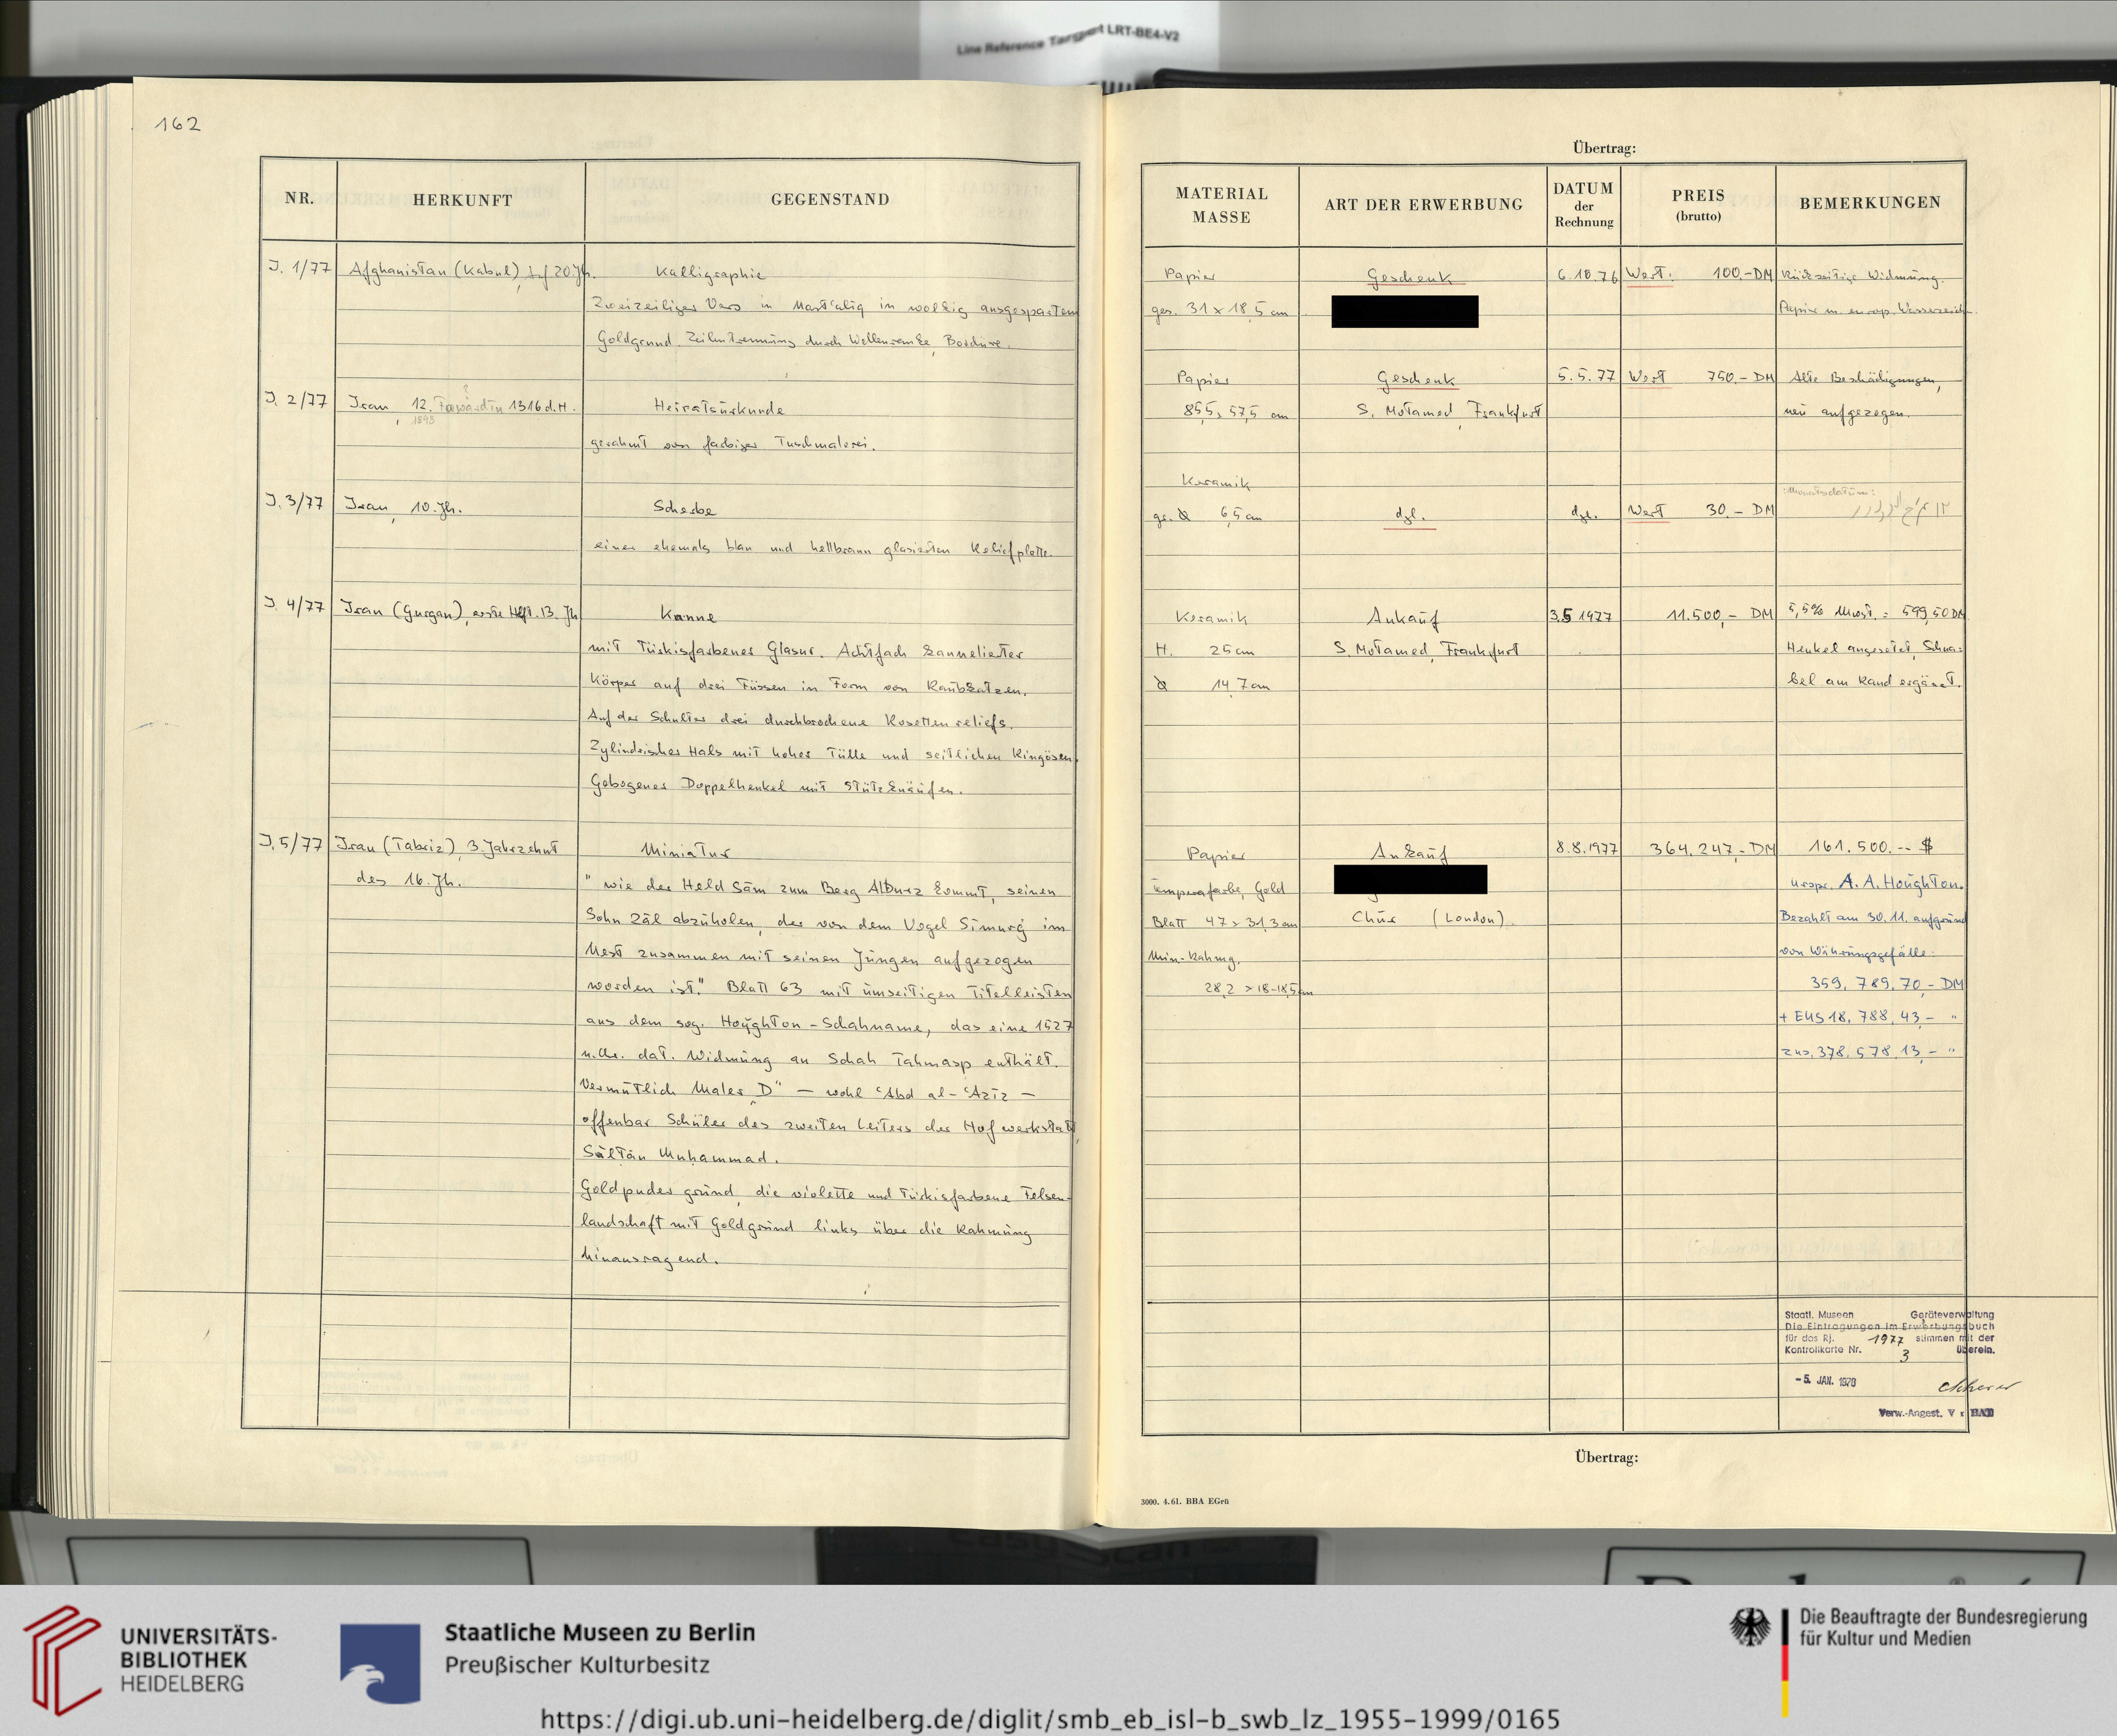 Line Reference Target LRT-BE4-V2
162
NR. HERKUNFT GEGENSTAND
J. 1/77 Afghanistan (Kabul), Anf 20 Jh. Kalligraphie
Zweizeiliger Vers in Nast'aliq in wolkig ausgespartem
Goldgrund. Zeilentrennung durch Wellenranke, Bordüre.
J. 2/77 Iran, 12. Farwardin 1316 d.H. Heiratsurkunde
1898
gerahmt von farbiger Tuschmalerei.
J. 3/77 Iran, 10. Jh. Scherbe
einer ehemals blau und hellbraun glasierten Reliefplatte.
J. 4/77 Iran (Gurgan), erste Hft. 13. Jh Kanne
mit türkisfarbener Glasur. Achtfach kannelierter
Körper auf drei Füssen in Form von Raubkatzen.
Auf der Schulter drei durchbrochene Rosettenreliefs.
Zylindrischer Hals mit hoher Tülle und seitlichen Ringösen.
Gebogener Doppelhenkel mit Stützknäufen.
J. 5/77 Iran (Tabriz), 3. Jahrzehnt Miniatur
des 16. Jh.
"wie der Held Sām zum Berg Alburz kommt, seinen
Sohn Zāl abzuholen, der von dem Vogel Sīmurġ im
Nest zusammen mit seinen Jungen aufgezogen
worden ist." Blatt 63 mit umseitigen Titelleisten
aus dem sog. Houghton-Schahname, das eine 1527
n.Chr. dat. Widmung an Schah Tahmasp enthält.
Vermutlich Maler „D" – wohl ʿAbd al-ʿAzīz –
offenbar Schüler des zweiten Leiters der Hofwerkstatt,
Sulṭān Muḥammad.
Goldpudergrund, die violette und türkisfarbene Felsen-
landschaft mit Goldgrund links über die Rahmung
hinausragend.
Übertrag:
MATERIAL MASSE ART DER ERWERBUNG DATUM der Rechnung PREIS (brutto) BEMERKUNGEN
Papier Geschenk 6.10.76 Wert: 100.-DM Rückseitige Widmung.
ges. 31 x 18,5 cm Papier m. europ. Wasserzeich.
Papier Geschenk 5.5.77 Wert 750.- DM Alte Beschädigungen,
85,5 x 57,5 cm S. Motamed, Frankfurt neu aufgezogen.
Keramik
Monatsdatum:
gr. Ø 6,5 cm dgl. dgl. Wert 30.- DM
Keramik Ankauf 3.5.1977 11.500,- DM 5,5% Mwst. = 599,50 DM
H. 25 cm S. Motamed, Frankfurt Henkel angesetzt, Schna=
Ø 14,7 cm bel am Rand ergänzt.
Papier Ankauf 8.8.1977 364.247,- DM 161.500.-- $
Temperafarbe, Gold urspr. A. A. Houghton.
Blatt 47 x 31,3 cm Chur (London) Bezahlt am 30.11. aufgrund
Min-Rahmg. von Währungsgefälle:
28,2 x 18-18,5 cm 359.789,70,- DM
+ EUS 18.788,43,- "
zus. 378.578,13,- "
Staatl. Museen Geräteverwaltung
Die Eintragungen im Erwerbungsbuch
für das Rj. 1977 stimmen mit der
Kontrollkarte Nr. 3 überein.
-5. JAN. 1978
Verw.-Angest.
Übertrag:
3000. 4.61. BBA EGrü
UNIVERSITÄTS-
BIBLIOTHEK
HEIDELBERG
Staatliche Museen zu Berlin
Preußischer Kulturbesitz
Die Beauftragte der Bundesregierung
für Kultur und Medien
https://digi.ub.uni-heidelberg.de/diglit/smb_eb_isl-b_swb_lz_1955-1999/0165